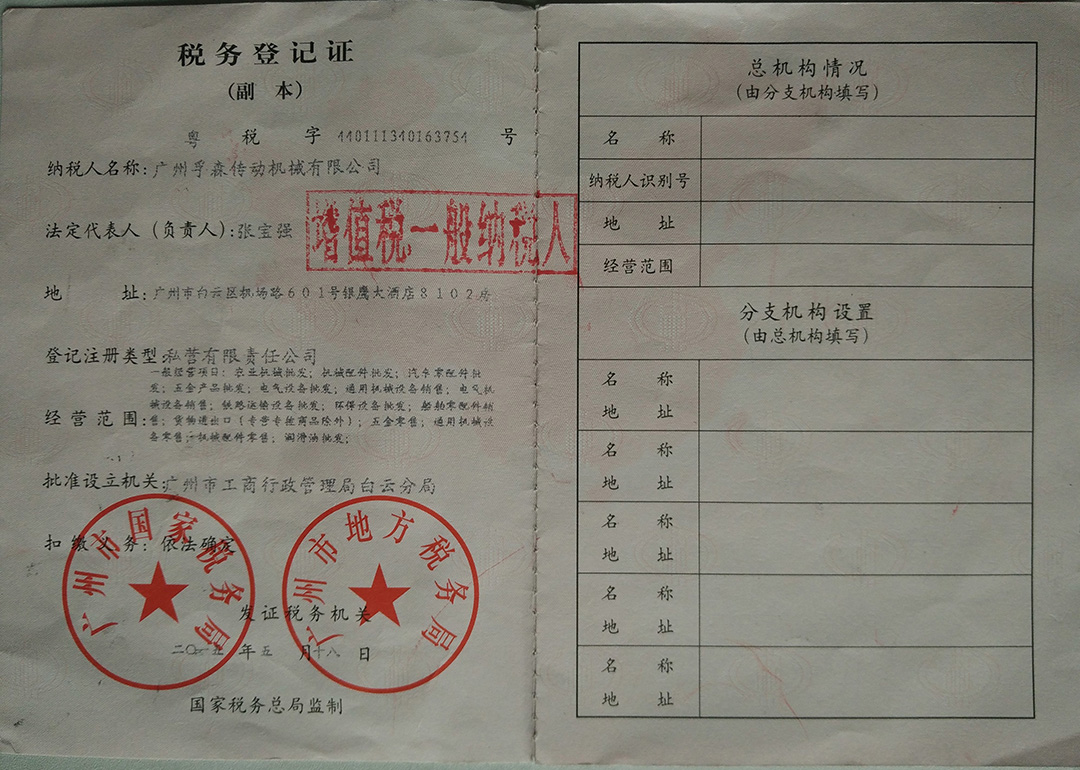 税务登记证
(副 本)
粤 税 字 440111340163754 号
纳税人名称:广州孚森传动机械有限公司
法定代表人(负责人):张宝强
增值税一般纳税人
地 址:广州市白云区机场路601号银鹰大酒店8102房
登记注册类型:私营有限责任公司
经营范围:
一般经营项目:农业机械批发;机械配件批发;汽车零配件批
发;五金产品批发;电气设备批发;通用机械设备销售;电气机
械设备销售;铁路运输设备批发;环保设备批发;船舶零配件销
售;货物进出口(专营专控商品除外);五金零售;通用机械设
备零售;机械配件零售;润滑油批发;
批准设立机关:广州市工商行政管理局白云分局
扣缴义务:依法确定
广州市国家税务局
广州市地方税务局
发证税务机关
二〇一五年五月十八日
国家税务总局监制
总机构情况
(由分支机构填写)
名 称
纳税人识别号
地 址
经营范围
分支机构设置
(由总机构填写)
名 称
地 址
名 称
地 址
名 称
地 址
名 称
地 址
名 称
地 址